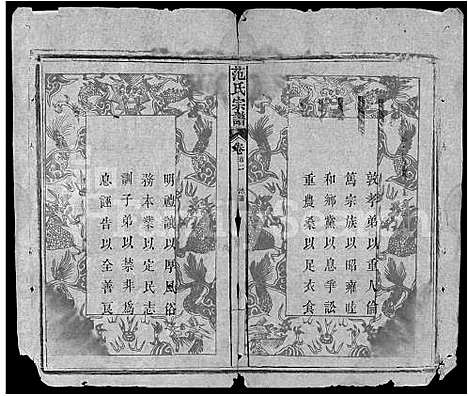 敦孝弟以重人倫
篤宗族以昭雍睦
和鄉黨以息爭訟
重農桑以足衣食
范氏宗譜
卷
明禮讓以厚風俗
務本業以定民志
訓子弟以禁非為
息誣告以全善良